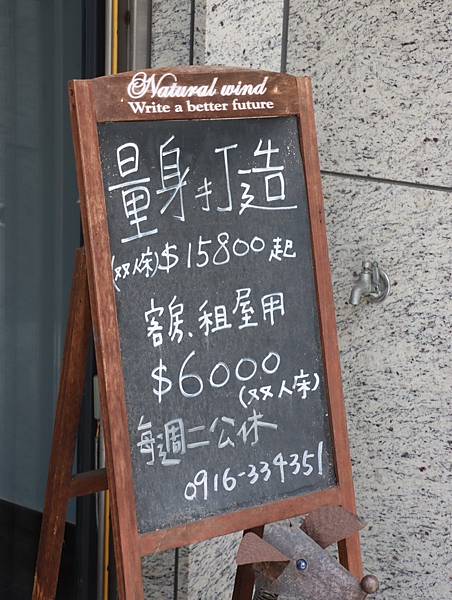 Natural wind
Write a better future
量身打造
(双人床)$15800起
客房、租屋用
$6000
(双人床)
每週二公休
0916-334351